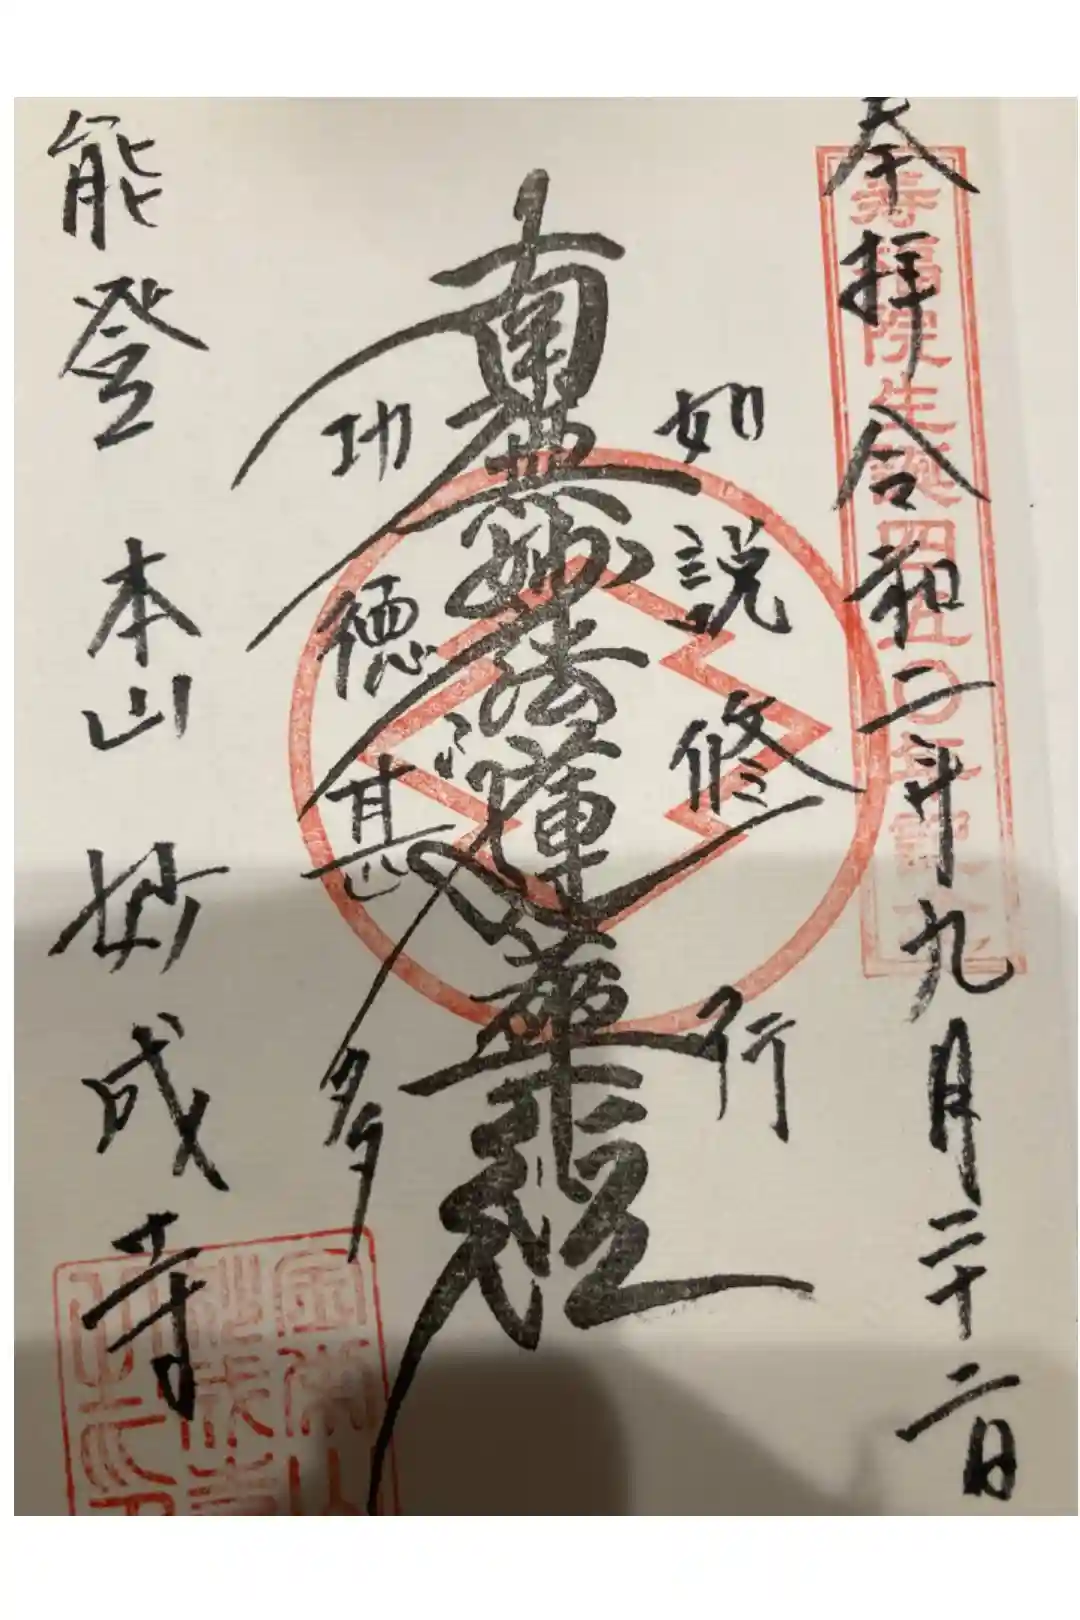 奉拝 令和二年九月二十二日
寿福院生誕四五〇年
如説修行
南無妙法蓮華経
功徳甚多
能登 本山 妙成寺
金栄山妙成寺